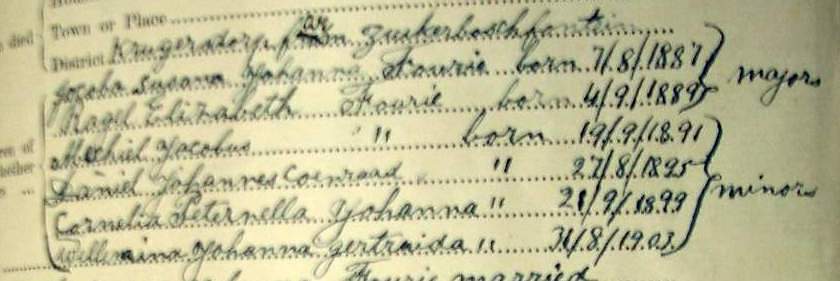 Town or Place
died
District Krugersdorp farm Zuikerboschfontein
Jacoba Susana Yohanna Fourie born 7/8/1887
Ragel Elizabeth Fourie born 4/9/1889
majors
Mechiel Jacobus " born 19/9/1891
Daniel Johannes Coenraad " 27/8/1895
Cornelia Peternella Yohanna " 21/9/1899
Willemina Yohanna gertruida " 31/8/1903
minors
of
whether
Fourie married